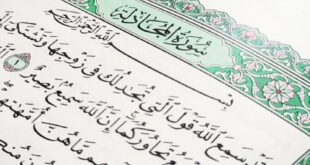 سُورَةُ الْمُجَادلَةِ
بِسْمِ اللَّهِ الرَّحْمَٰنِ الرَّحِيمِ
سَمِعَ اللَّهُ قَوْلَ الَّتِي تُجَٰدِلُكَ فِي زَوْجِهَا وَتَشْتَكِي
تَحَاوُرَكُمَا إِنَّ اللَّهَ سَمِيعٌ بَصِيرٌ ١
مَّا هُنَّ أُمَّهَٰتِهِمْ